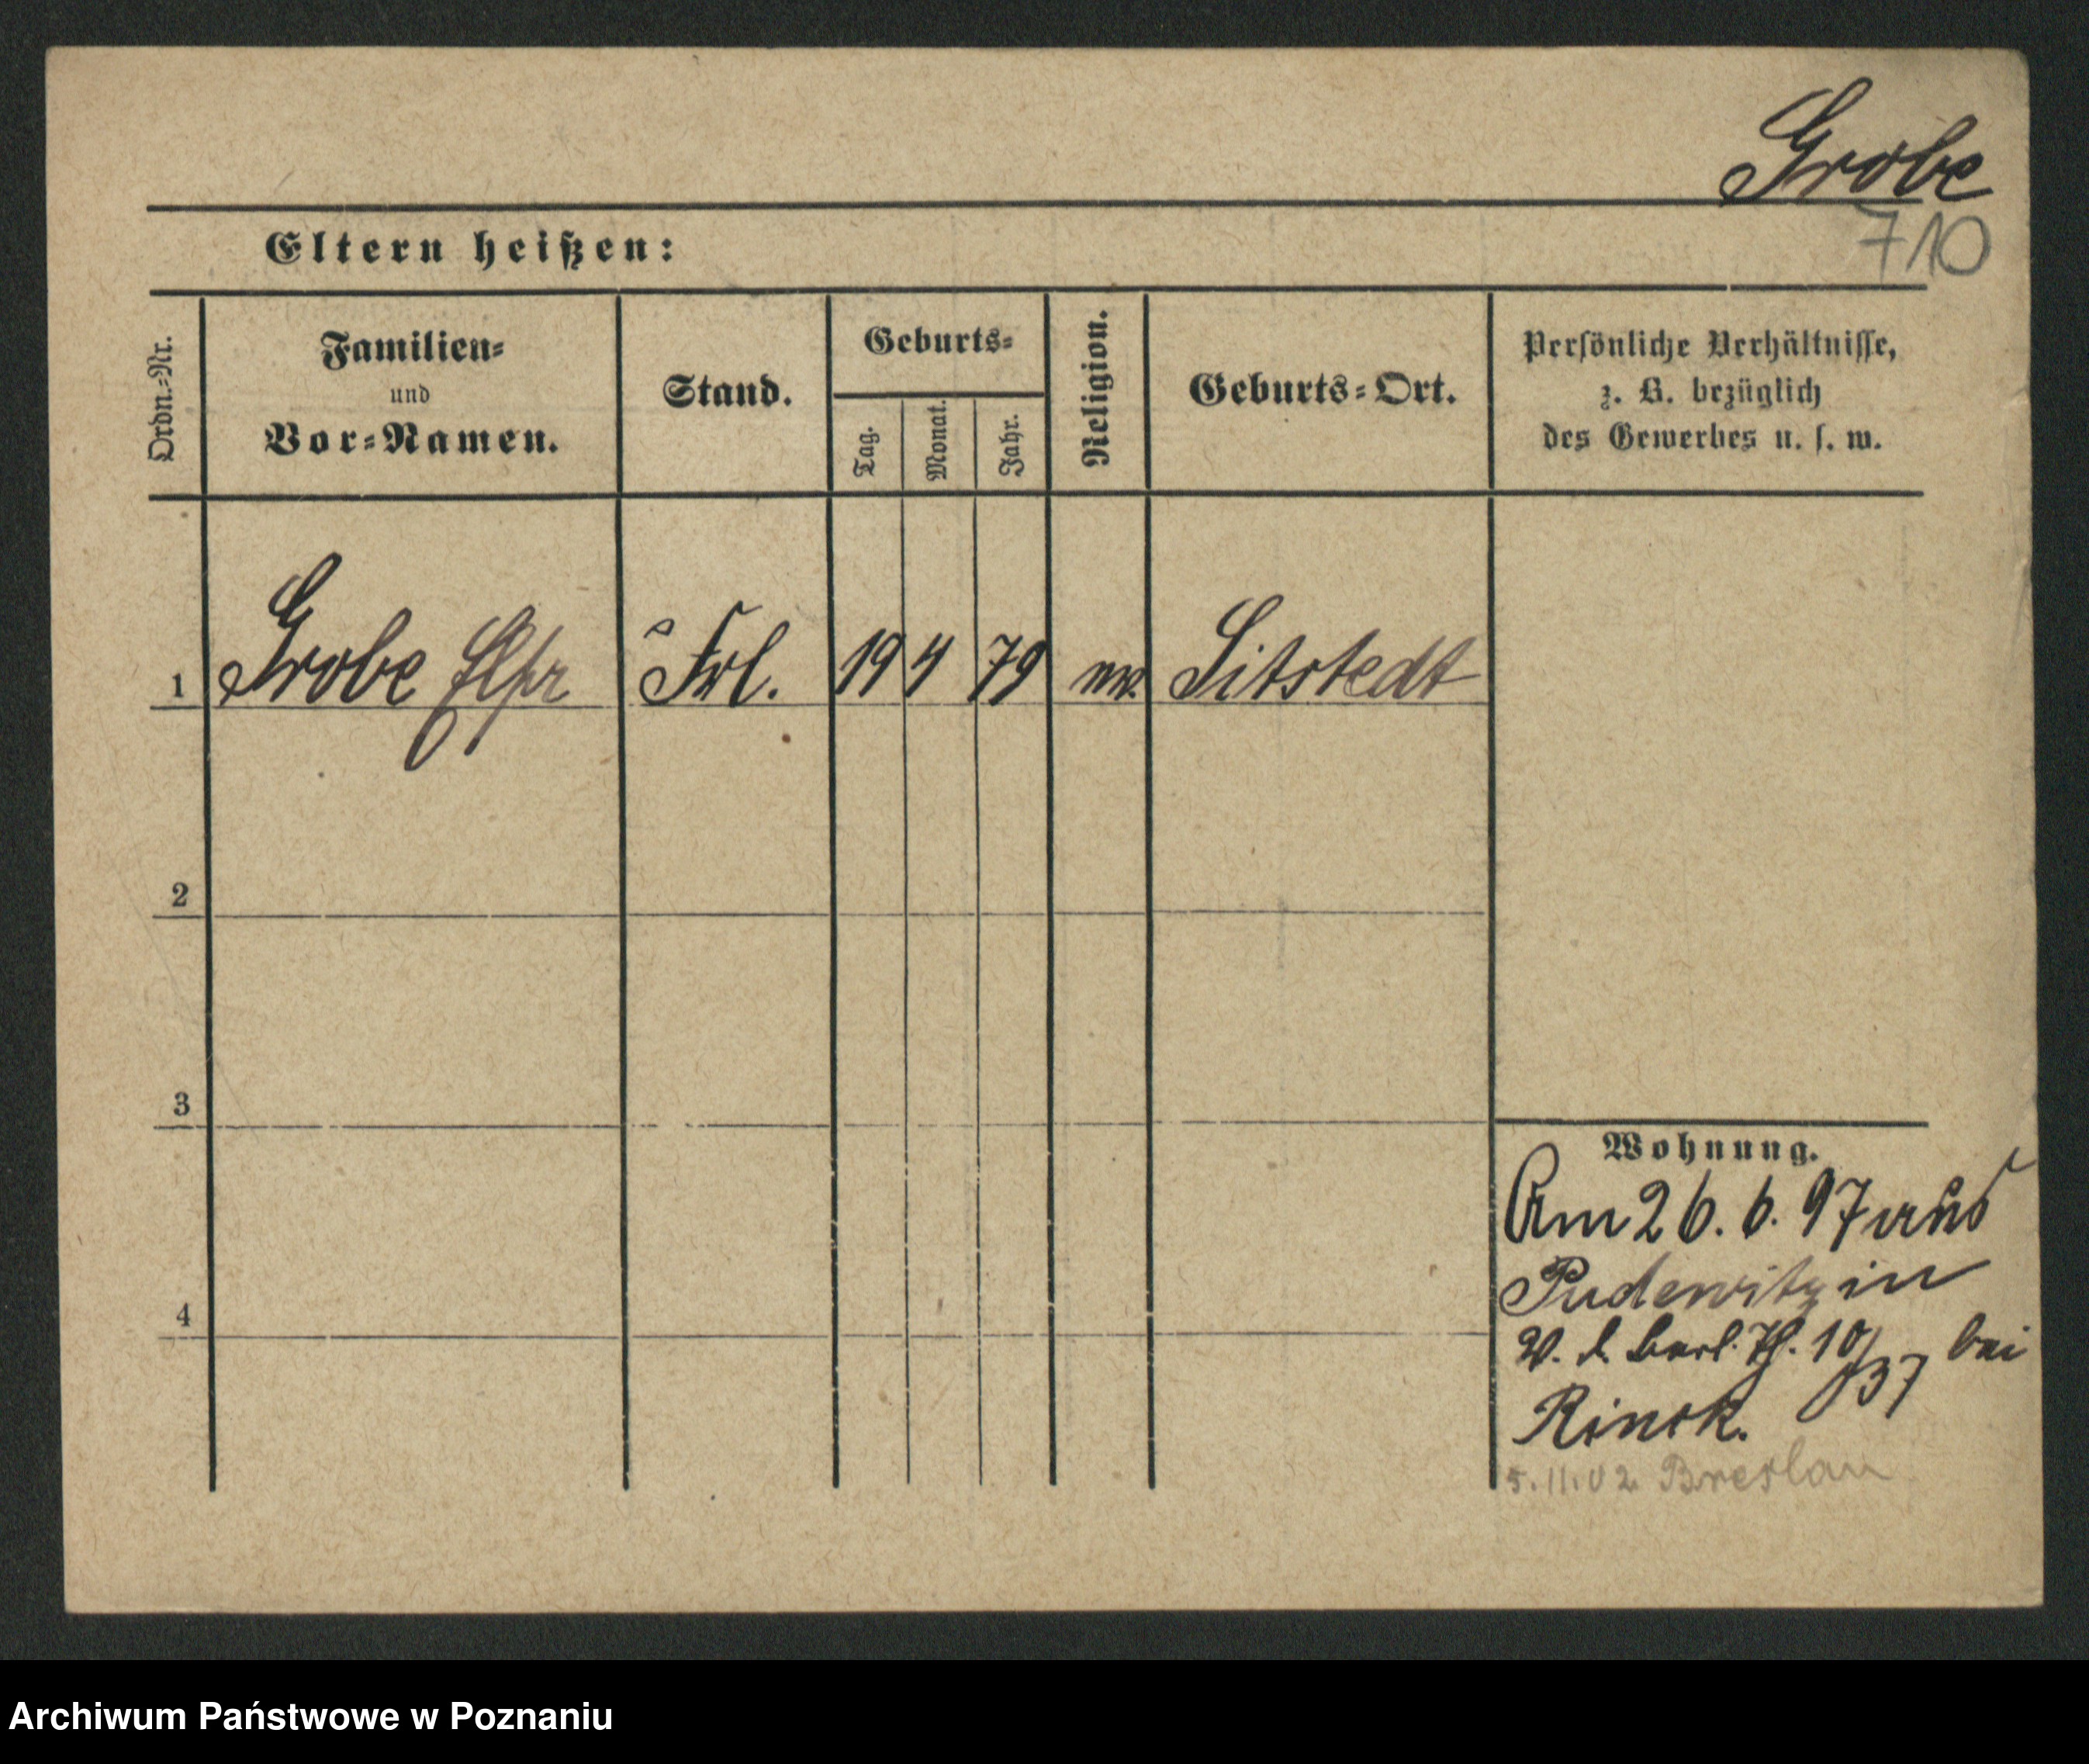 Grobe
710
Eltern heißen:
Ordn.=Nr.
Familien=
und
Vor=Namen.
Stand.
Geburts=
Tag.
Monat.
Jahr.
Religion.
Geburts=Ort.
Persönliche Verhältnisse,
z. B. bezüglich
des Gewerbes u. s. w.
1 Grobe Frl. 19 4 79 Sitstedt
2
3
4
Wohnung.
Am 26. 6. 97 aus
Pudewitz in
10/37 bei
Rinck.
5.11.02 Breslau
Archiwum Państwowe w Poznaniu